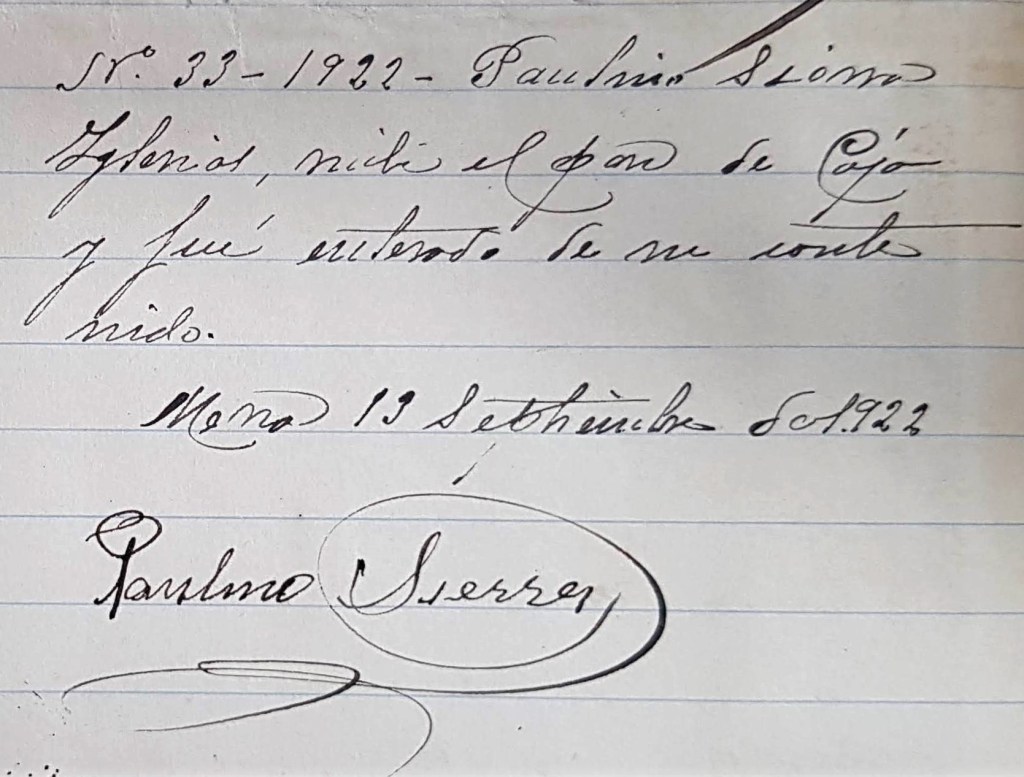 Nº. 33 - 1922 - Paulino Sierra
Iglesias, recibí el pase de Caja
y fué enterado de su conte
nido.
Mena 13 Septiembre de 1.922
Paulino Sierra